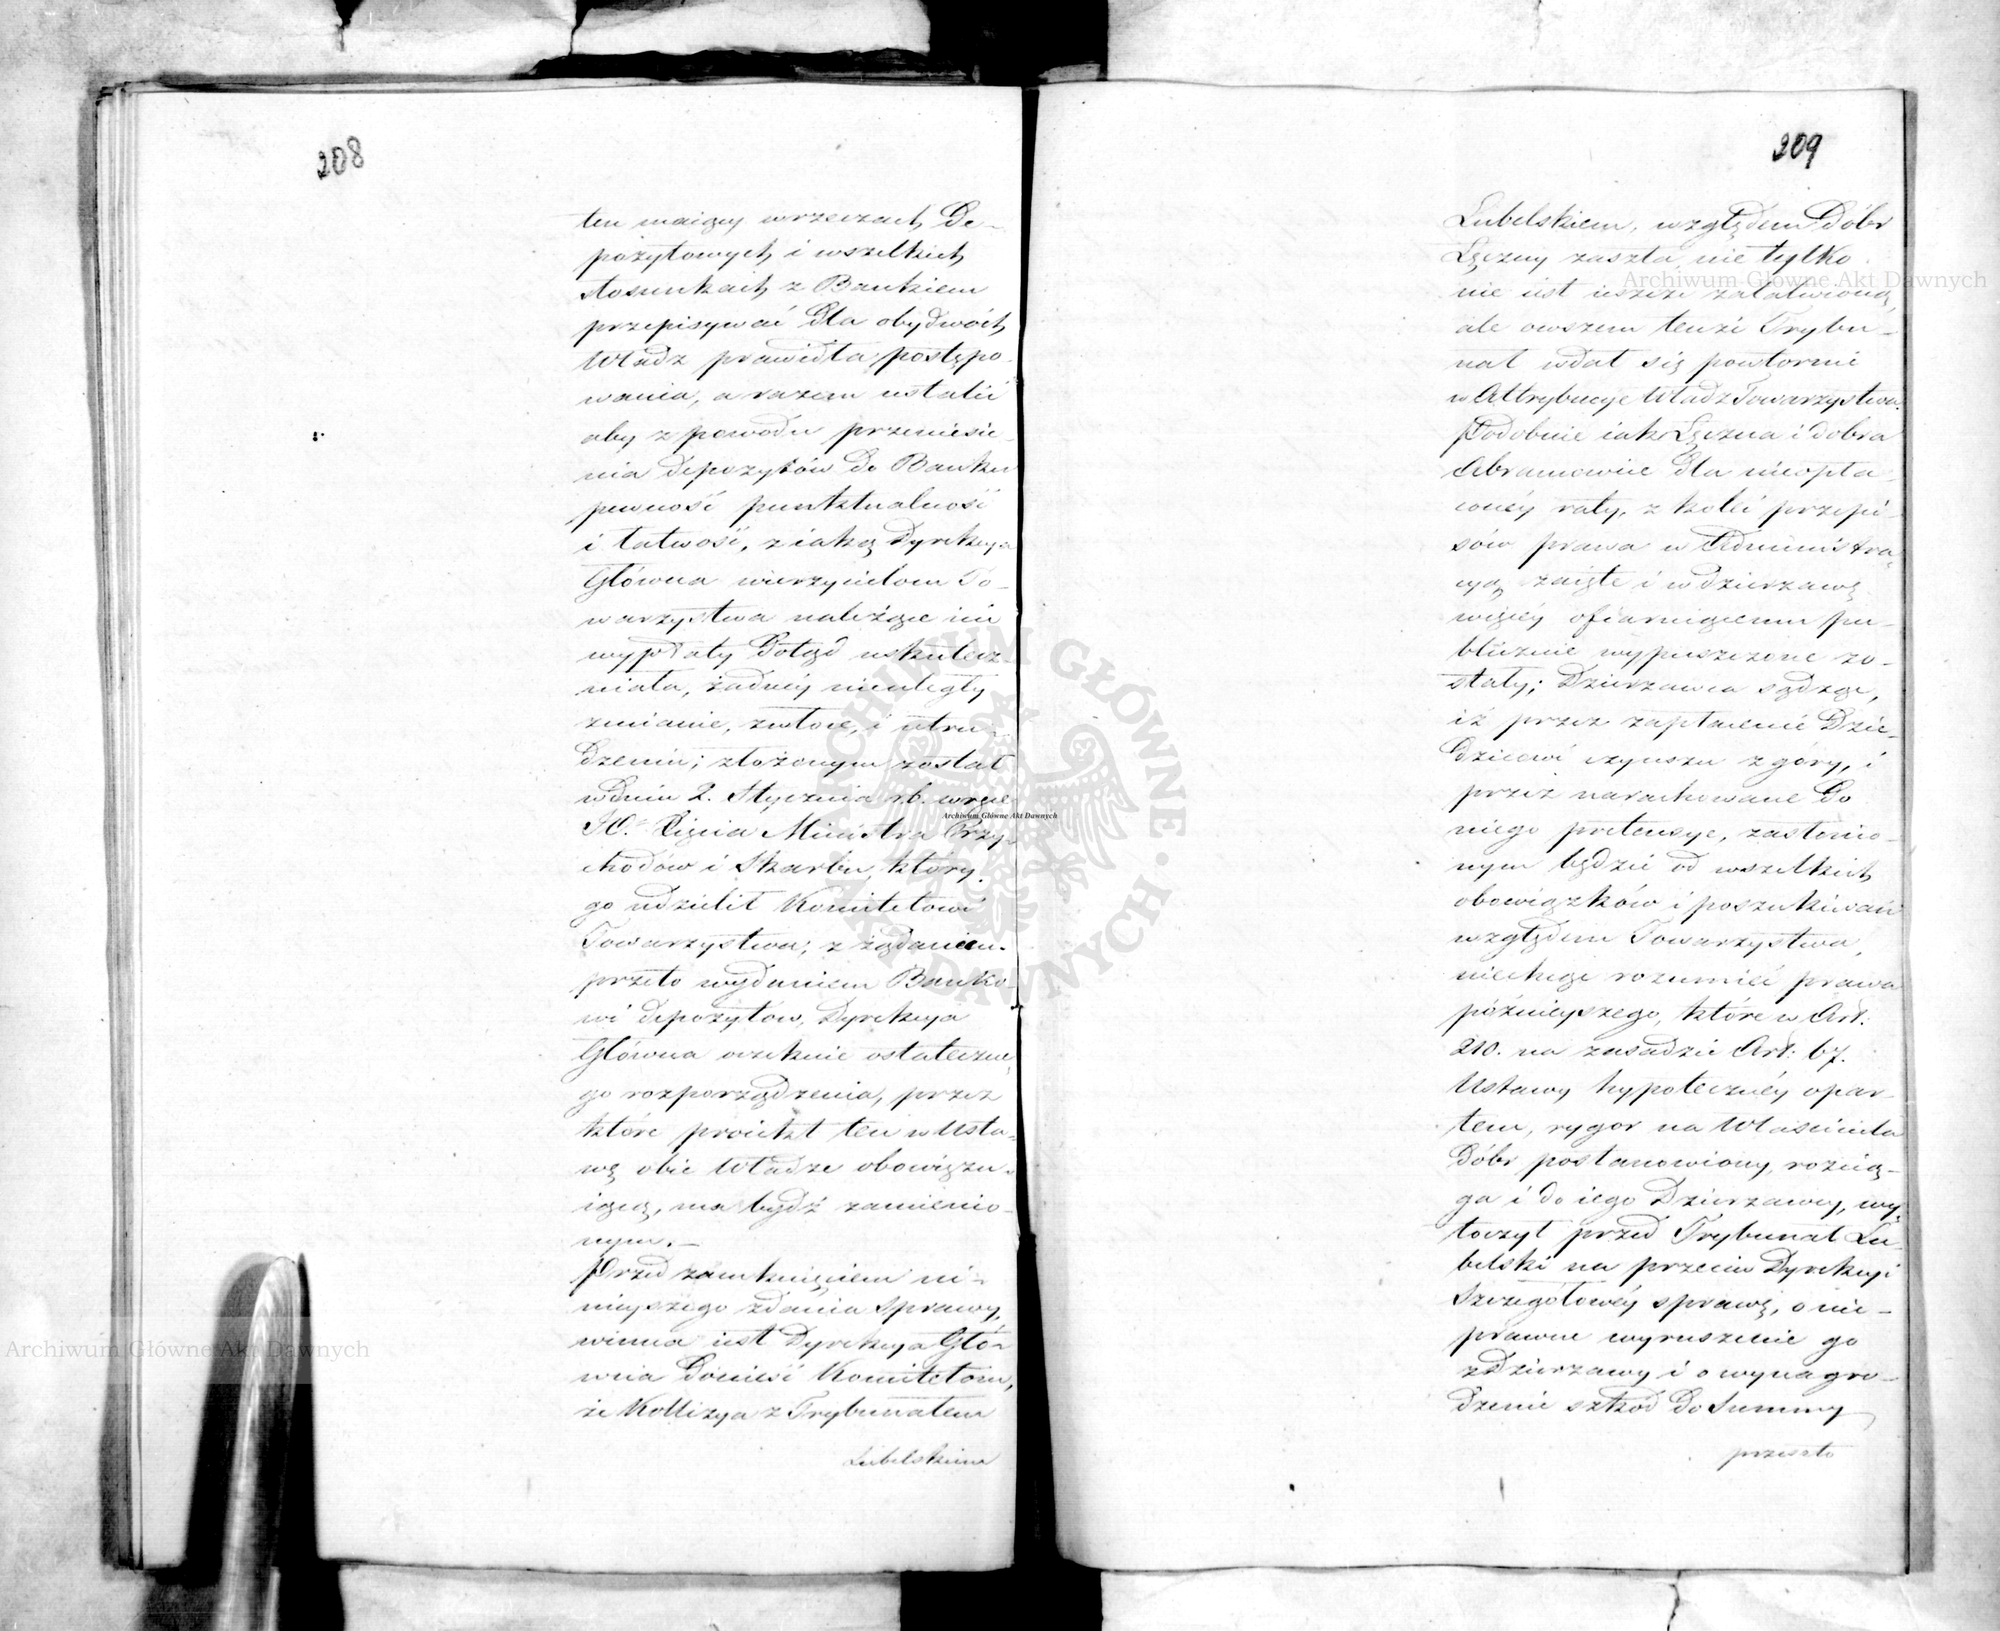 208
ten maiący w rzeczach De-
pozytowych i wszelkich
stosunkach z Bankiem
przepisywać dla obydwóch
Władz prawidła postępo-
wania, a razem ustalić
aby z powodu przeniesie-
nia depozytów do Banku
pewność punktualność
i łatwość, z iaką Dyrekcya
Główna wierzycielom To-
warzystwa należące im
wypłaty dotąd uskutecz-
niała, żadney nieuległy
zmianie, zwłoce, i utru-
dzeniu; złożonym został
w dniu 2. Stycznia r.b. w ręce
JO. Xięcia Ministra Przy-
chodów i Skarbu, który
go udzielił Komitetowi
Towarzystwa; z żądaniem
przeto wydaniem Banko-
wi depozytów, Dyrekcya
Główna oczekuie ostateczne-
go rozporządzenia, przez
które proiekt ten w Usta-
wę obie Władze obowiązu-
iącą, ma bydź zamienio-
nym.—
Przed zamknięciem ni-
nieyszego zdania Sprawy,
winna iest Dyrekcya Głó-
wna donieść Komitetowi,
że Kollizya z Trybunałem
Lubelskiem
209
Lubelskiem, względem Dóbr
Łęczny zaszła, nie tylko
nie iest ieszcze załatwioną,
ale owszem tenże Trybu-
nał wdał się powtórnie
w Attrybucye Władz Towarzystwa.
Podobnie iak Łęczna i dobra
Abramowice dla nieopła-
coney raty, z kolei przepi-
sów prawa w Administra-
cyą zaięte i w dzierzawę
więcéy ofiarniącemu pu-
blicznie wypuszczone zo-
stały; Dzierzawca sądząc,
iż przez zapłacenie Dzie-
dzicowi czynszu z góry, i
przez narachowane do
niego pretensye, zasłonio-
nym będzie od wszelkich
obowiązków i poszukiwań
względem Towarzystwa,
niechcąc rozumieć prawa
późnieyszego, które w Art:
210. na zasadzie Art: 67.
Ustawy hypoteczney opar-
tem, rygor na Właściciela
Dóbr postanowiony, rozcią-
ga i do iego Dzierzawcy, wy-
toczył przed Trybunał Lu-
belski na przeciw Dyrekcyi
Szczegółowéy sprawę, o nie-
prawne wyruszenie go
z Dzierzawy i o wynagro-
dzenie szkód do Summy
przeszło
Archiwum Główne Akt Dawnych
Archiwum Główne Akt Dawnych
Archiwum Główne Akt Dawnych
ARCHIWUM GŁÓWNE AKT DAWNYCH